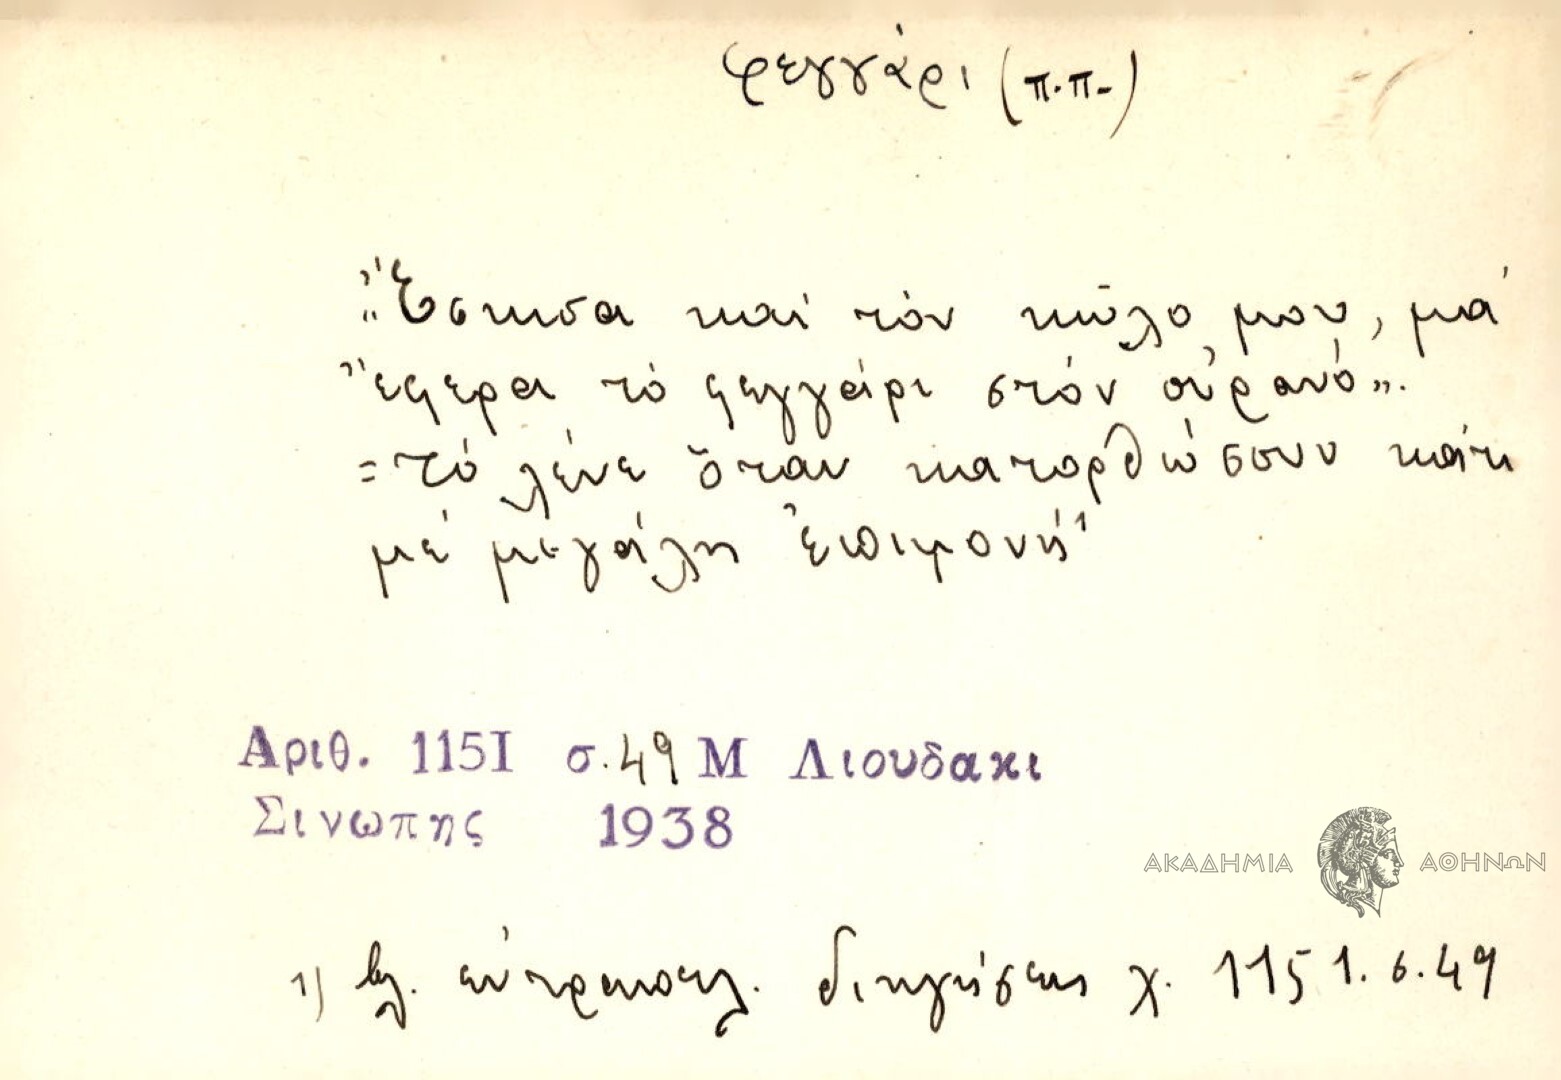 φεγγάρι (π.π.)
„Ἔσκισα καί τόν κῶλο μου, μά
ἔφερα τό φεγγάρι στόν οὐρανό".
=Τό λένε ὅταν κατορθώσουν κάτι
μέ μεγάλη ἐπιμονή¹
Αριθ. 1151 σ. 49 Μ Λιουδακι
Σινωπης 1938
ΑΚΑΔΗΜΙΑ ΑΘΗΝΩΝ
1) βλ. εὐτραπελ. διηγήσεις χ. 1151. σ. 49